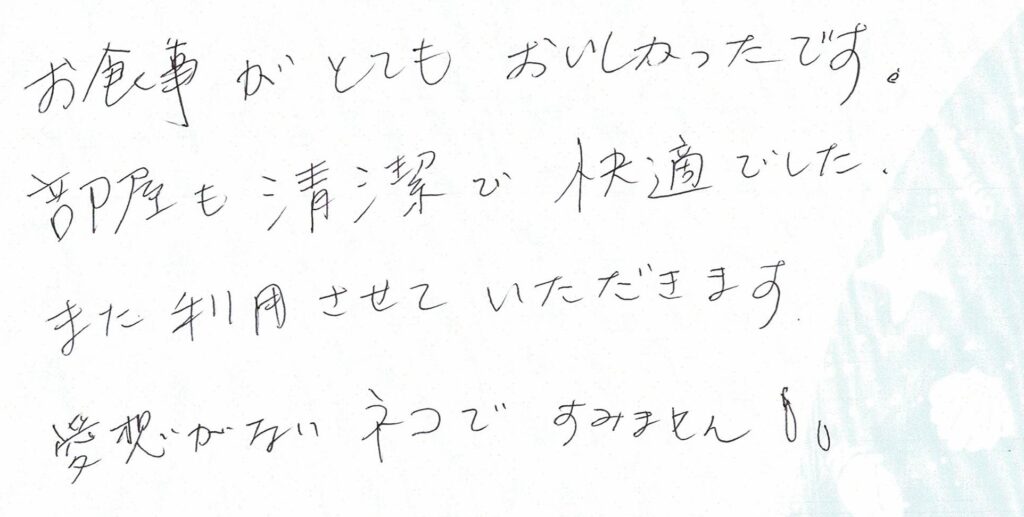 お食事がとてもおいしかったです。
部屋も清潔で快適でした.
また利用させていただきます.
愛想がないネコですみません